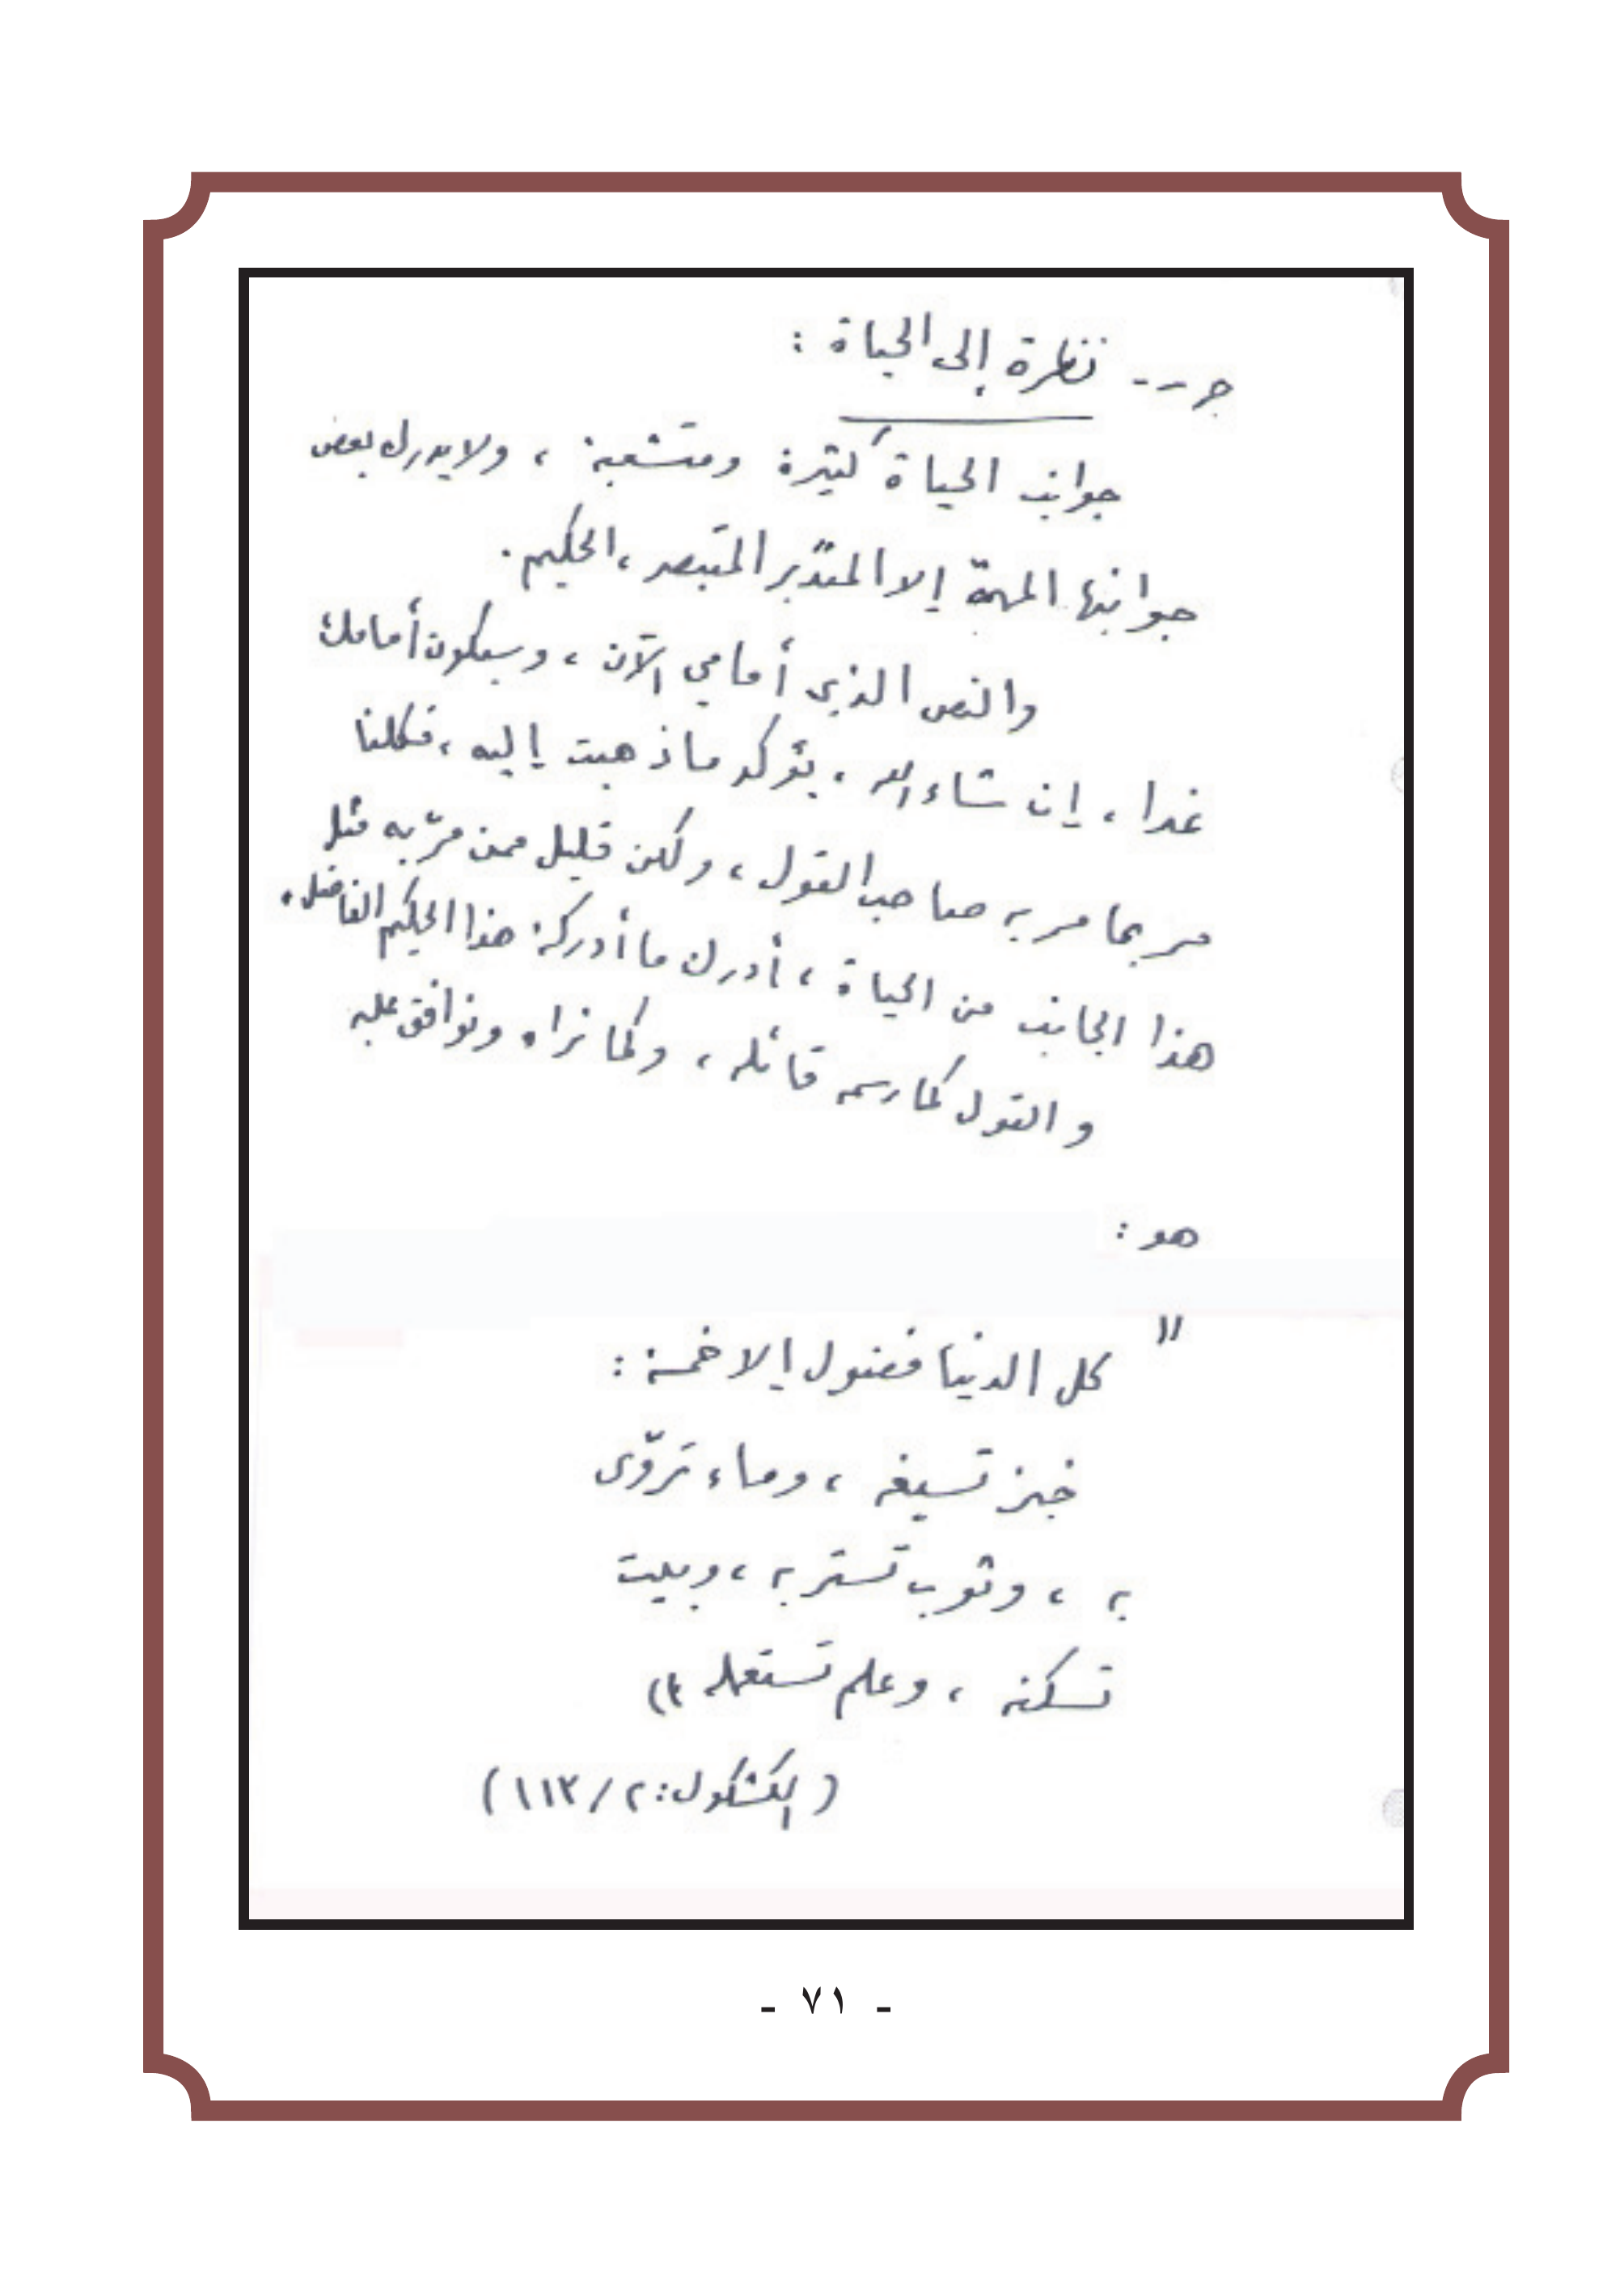 جـ -- نظرة إلى الحياة :
جوانب الحياة كثيرة ومتشعبة ، ولا يدرك بعض
جوانبها المهمّة إلا المتدبّر المتبصر ، الحكيم .
والنص الذي أمامي الآن ، وسيكون أمامك
غدا ، إن شاء الله ، يؤكد ما ذهبت إليه ، فكلنا
مر بما مر به صاحب القول ، ولكن قليل ممن مرّ به مثل
هذا الجانب من الحياة ، أدرك ما أدركه هذا الحكيم الفاضل .
و القول كما رسمه قائله ، وكما نراه ونوافق عليه
هو :
" كل الدنيا فضول إلا خمسة :
خبز تسيغه ، وماء تروّى
به ، وثوب تستتر به ، وبيت
تسكنه ، وعلم تستعمله "
( الكشكول : ٢ / ١١٣ )
- ٧١ -